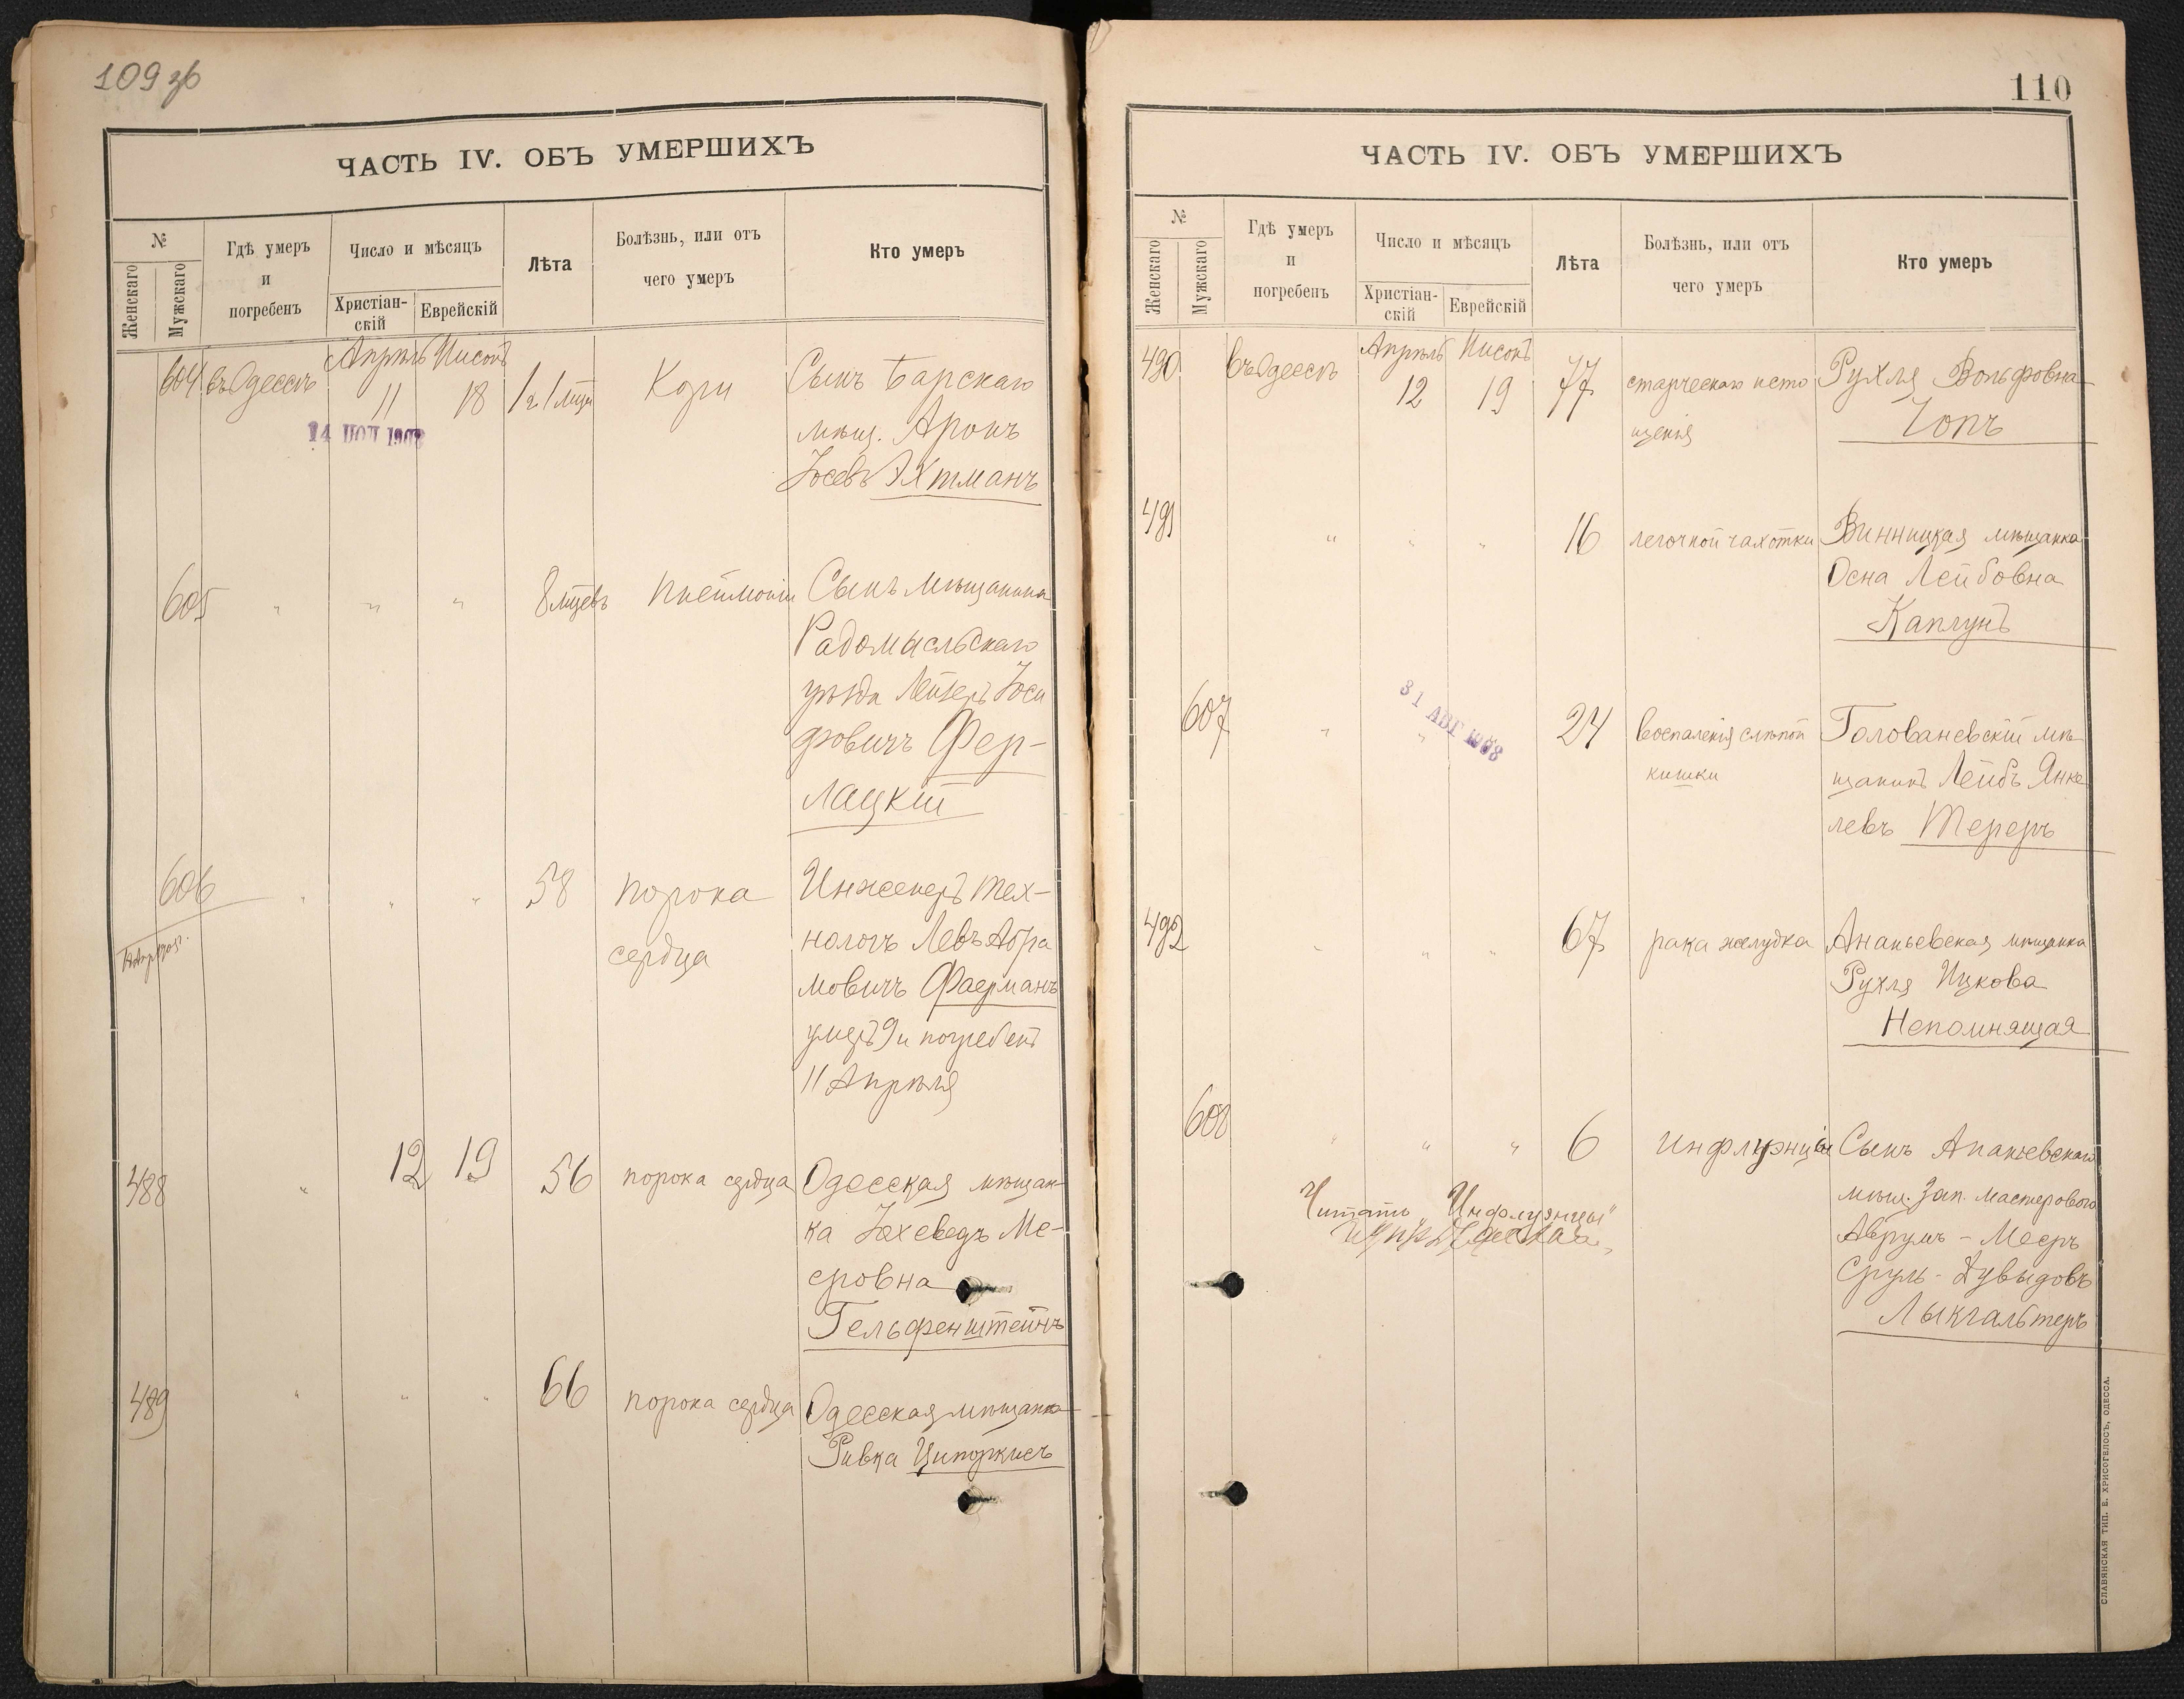 109 зв
ЧАСТЬ IV. ОБЪ УМЕРШИХЪ
№
Женскаго
Мужскаго
Гдѣ умеръ
и
погребенъ
Число и мѣсяцъ
Христіан-
скій
Еврейскій
Лѣта
Болѣзнь, или отъ
чего умеръ
Кто умеръ
604 въ Одессѣ Апрѣль 11 Нисонъ 18 Кори Сынъ Барскаго
мѣщ. Аронъ
Іосевъ Ахтманъ
14 ІЮЛ 1908
605 " " " 8 мцевъ Пнеймоніи Сынъ мѣщанина
Радомысльскаго
уѣзда Лейзеръ Іоси
фовичъ Фер-
лацкій
606 " " " 58 порока
сердца
Инженеръ Тех-
нологъ Левъ Абра
мовичъ Фаерманъ
умеръ 9 и погребенъ
11 Апрѣля
488 " 12 19 56 порока сердца Одесская мѣщан-
ка Іохеведъ Ме-
еровна
Гельфенштейнъ
489 " " " 66 порока сердца Одесская мѣщанка
Ривка Ципоркисъ
110
ЧАСТЬ IV. ОБЪ УМЕРШИХЪ
№
Женскаго
Мужскаго
Гдѣ умеръ
и
погребенъ
Число и мѣсяцъ
Христіан-
скій
Еврейскій
Лѣта
Болѣзнь, или отъ
чего умеръ
Кто умеръ
490 въ Одессѣ Апрѣль 12 Нисонъ 19 77 старческаго исто
щенія
Рухля Вольфовна
Чопъ
491 " " " 16 легочной чахотки Винницкая мѣщанка
Осна Лейбовна
Каплунъ
607 " " 24 воспаленія слѣпой
кишки
Голованевскій мѣ-
щанинъ Лейбъ Янке
левъ Тереръ
31 АВГ 1908
492 " " " 67 рака желудка Ананьевская мѣщанка
Рухля Ицкова
Непомнящая
608 " " " 6 инфлуэнціи Сынъ Ананьевскаго
мѣщ. Зап. мастероваго
Аврумъ-Мееръ
Сруль-Дувыдовъ
Лыкгальтеръ
Читать „Инфлуэнцы"
СЛАВЯНСКАЯ ТИП. Е. ХРИСОГЕЛОСЪ, ОДЕССА.